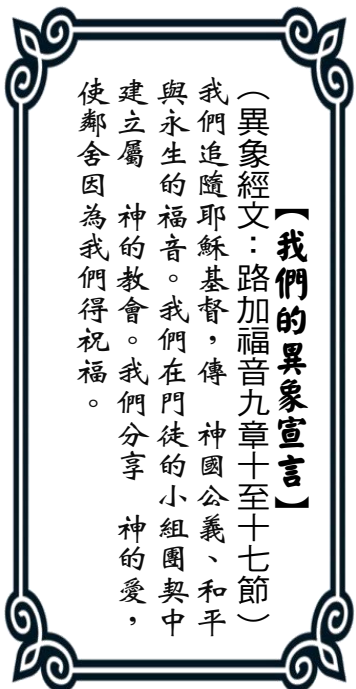 【我們的異象宣言】
（異象經文：路加福音九章十至十七節）
我們追隨耶穌基督，傳　神國公義、和平
與永生的福音。我們在門徒的小組團契中
建立屬　神的教會。我們分享　神的愛，
使鄰舍因為我們得祝福。